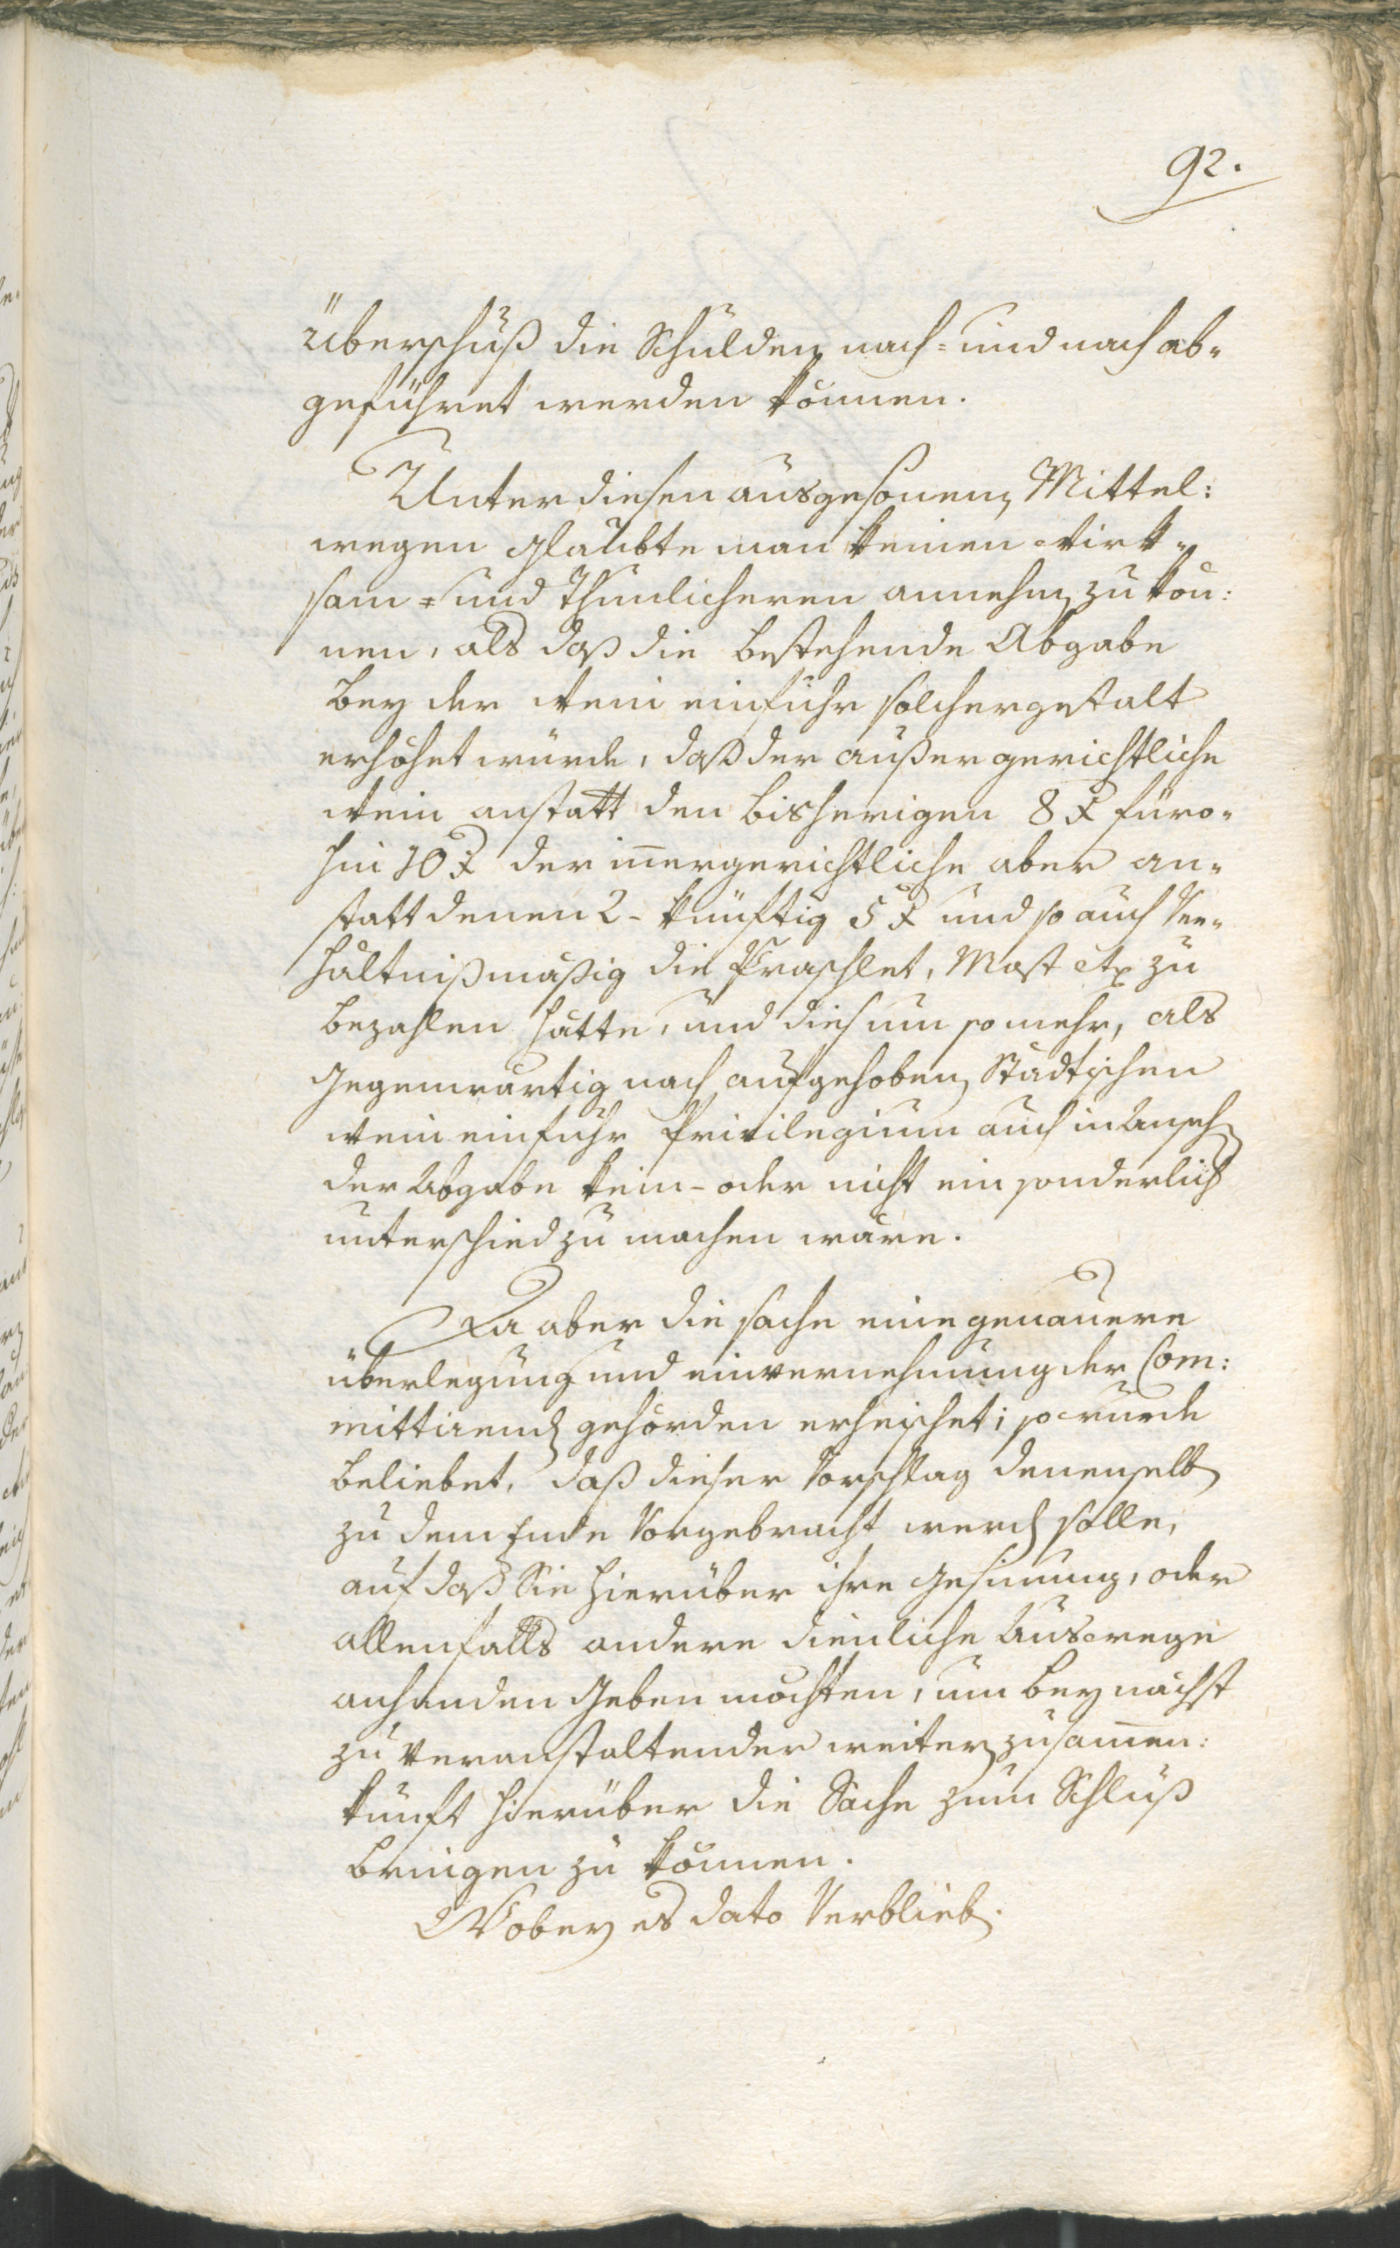 92.
Überschuß die Schulden nach- und nach ab-
geführet werden können.
Unter diesen ausgesonnen Mittel:
wegen glaubte man keinen wirk-
sam- und thunlicheren annehmen zu kön:
nen, als daß die bestehende Abgabe
bey der Wein einfuhr solchergestalt
erhöhet würde, daß der außergerichtliche
Wein anstatt den bisherigen 8 x füro-
hin 10 x der innergerichtliche aber an-
statt denen 2- künftig 5 x und so auch Ver-
hältnißmäßig die Praschlet, Most etc zu
bezahlen hätte, und dies um so mehr, als
gegenwärtig nach aufgehoben Städtischen
Wein einfuhr Privilegium auch in Anseh
der Abgabe kein- oder nicht ein sonderlich
unterschied zu machen wäre.
Da aber die sache eine genauere
überlegung und einvernehmung der Com:
mittirend gehörden erheischet; so wurde
beliebet, daß dieser Vorschlag denenselb
zu dem Ende Vorgebracht werd solle,
auf daß Sie hierüber ihre gesinnung, oder
allenfalls andere dienliche Auswege
anhanden geben möchten, um bey nächst
zu veranstaltender weiter zusammen:
kunft hierüber die Sache zum Schluß
bringen zu können.
Wobey es dato Verblieb.